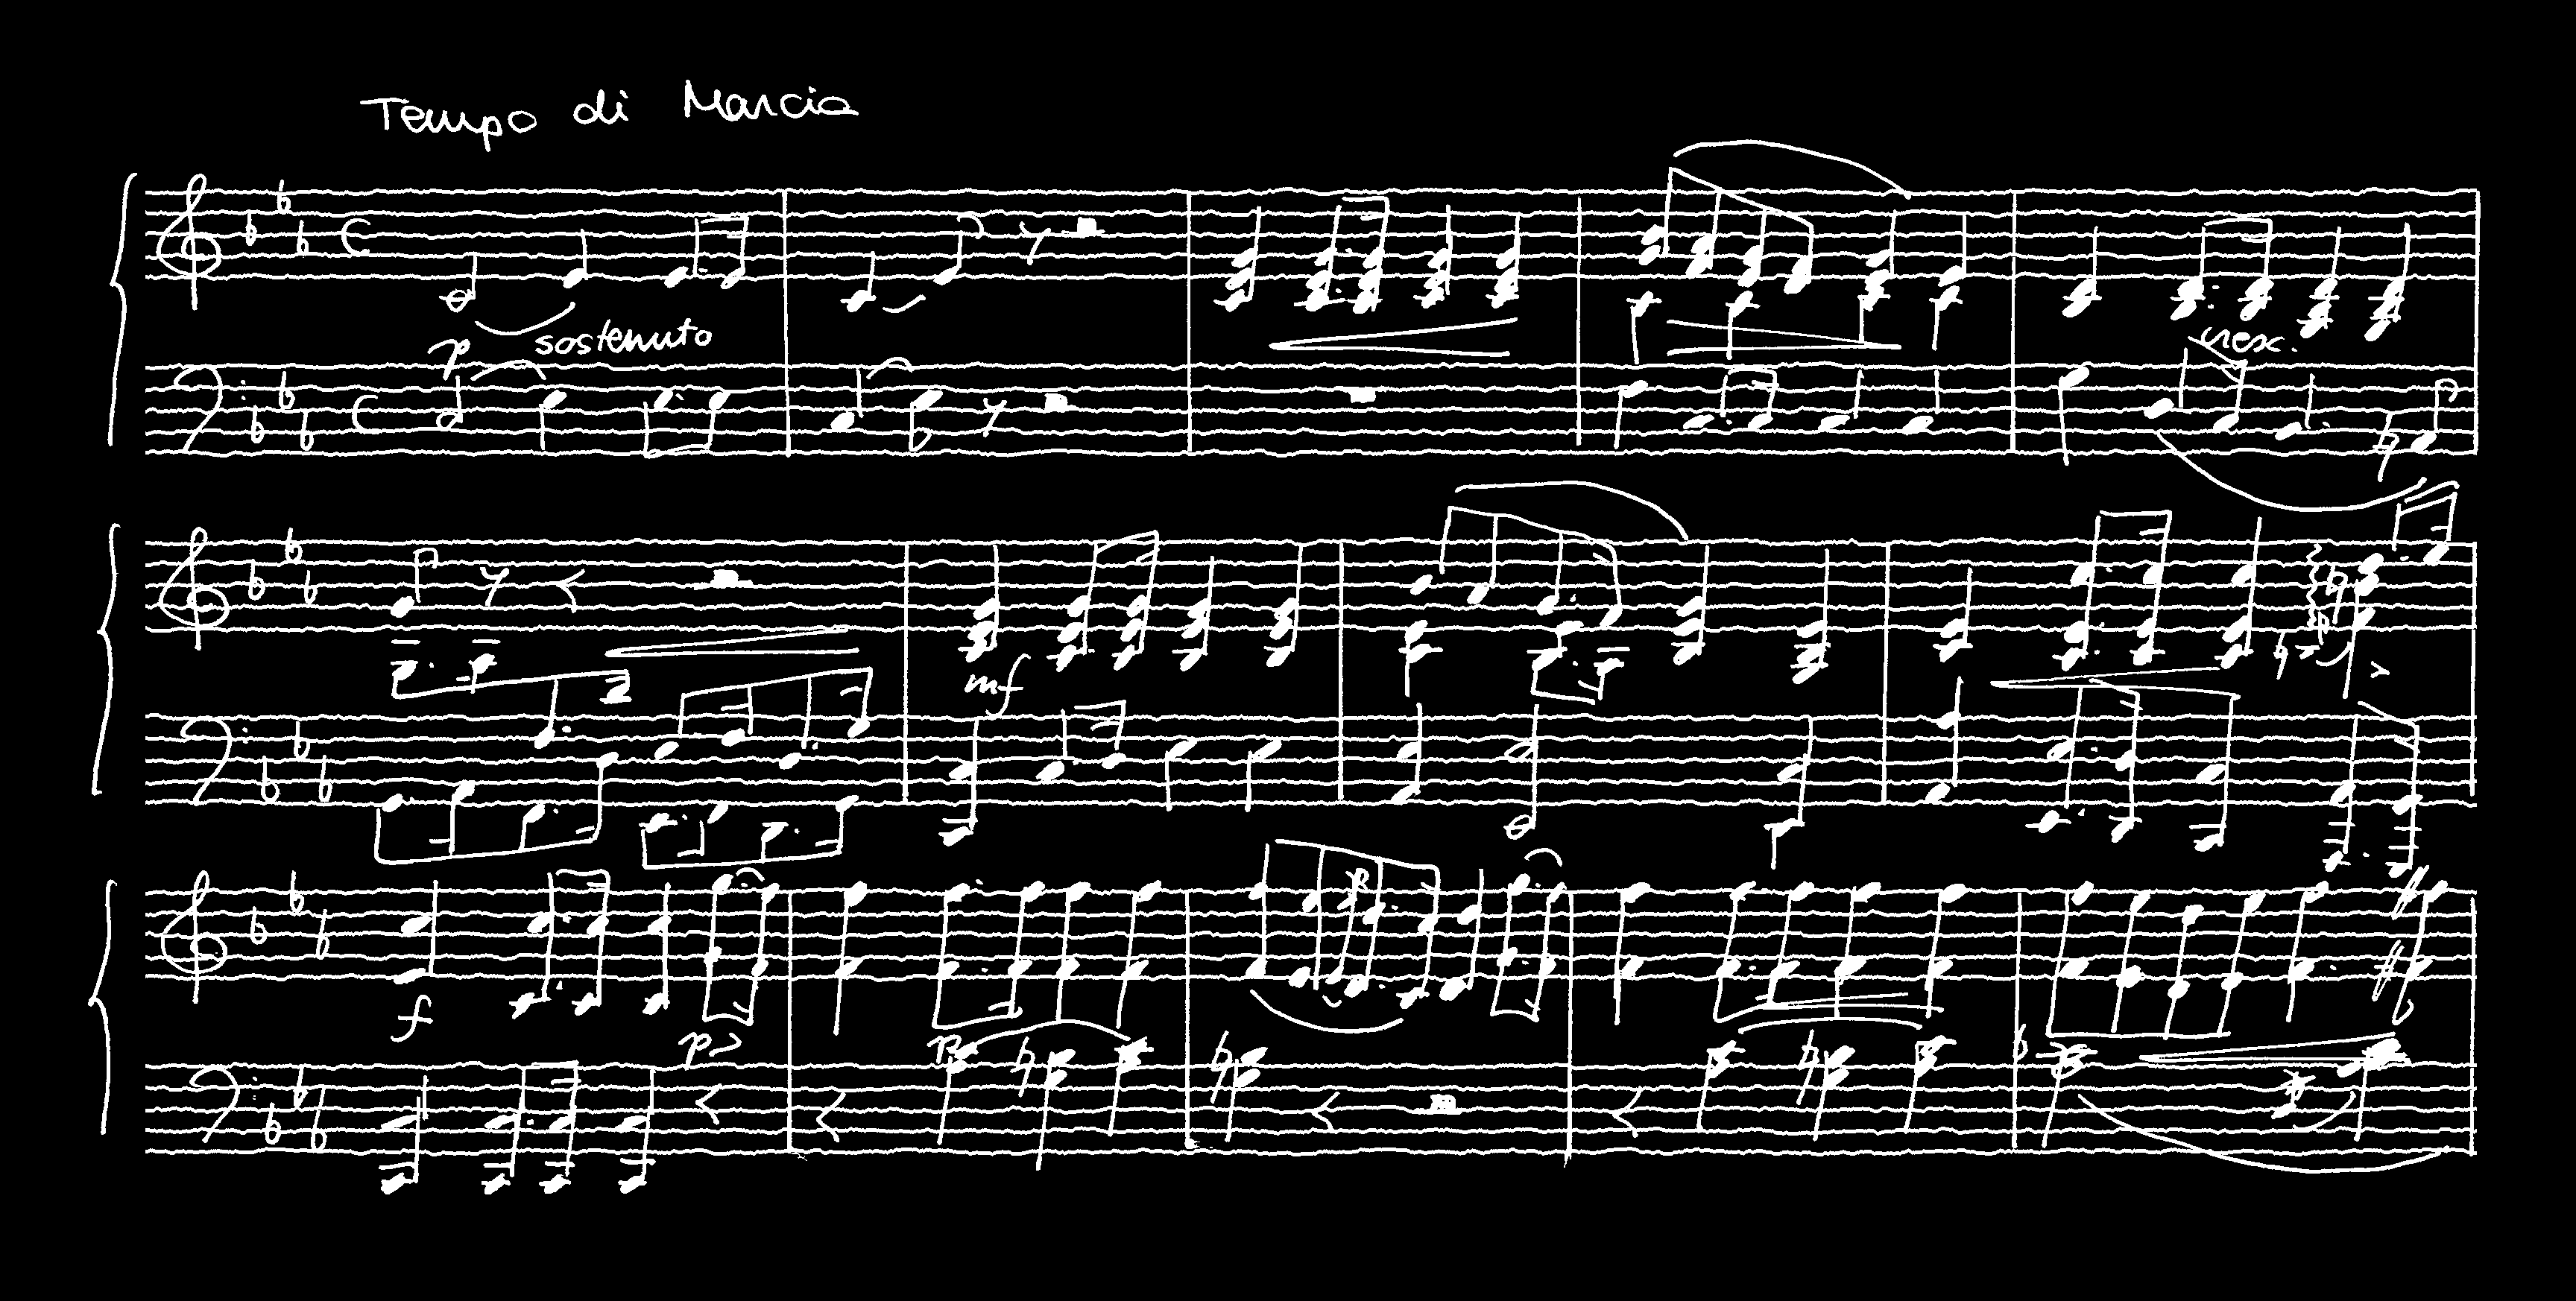 Tempo di Marcia
p sostenuto
cresc.
mf
f p